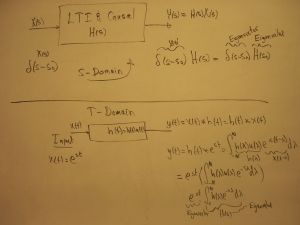 X(s)
LTI & Causal
H(s)
Y(s) = H(s)X(s)
X(s)
δ(s-s₀)
S-Domain
X(s)
δ(s-s₀) H(s) = δ(s-s₀) H(s₀)
Eigenvector
Eigenvalue
T-Domain
Input
x(t)
h(t)
y(t) = x(t) * h(t) = h(t) * x(t)
x(t) = e^st
y(t) = h(t) * e^st = ∫ h(λ)u(λ) e^s(t-λ) dλ
h(λ)
x(t-λ)
= e^st (∫ h(λ)u(λ) e^-sλ dλ)
e^st ∫ h(λ) e^-sλ dλ
H(s)
Eigenvalue